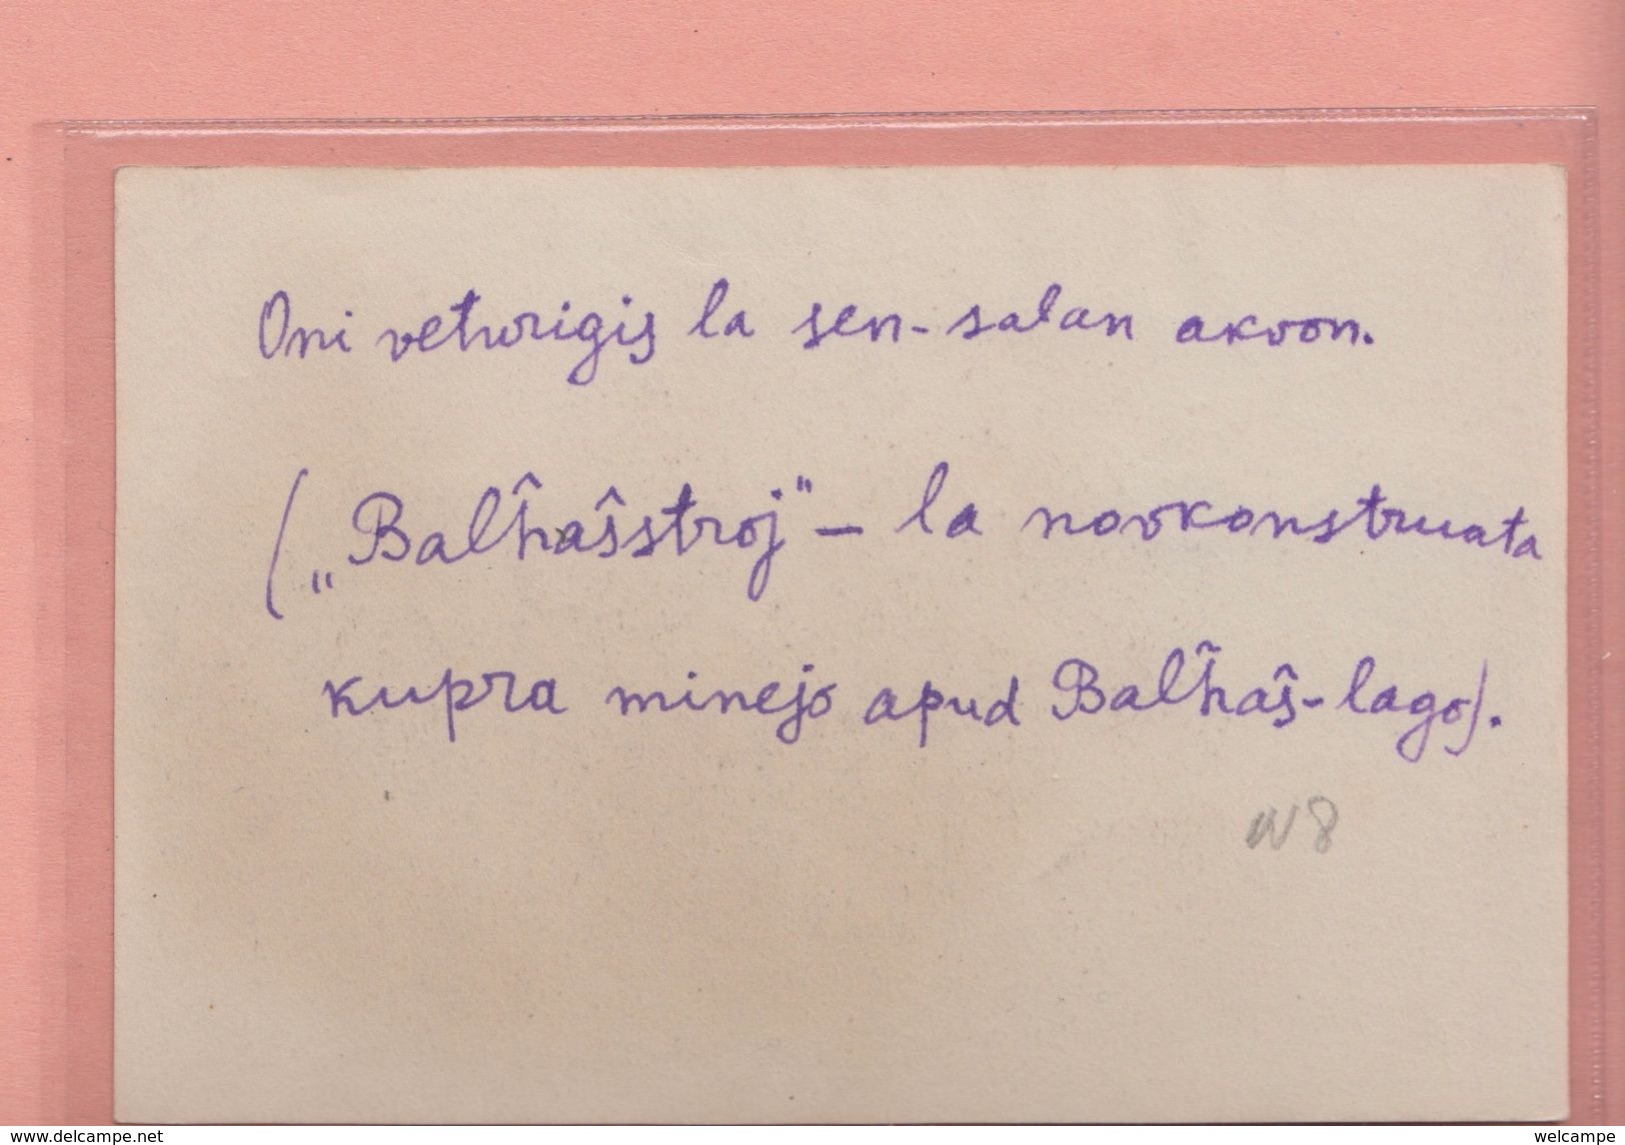 Oni veturigis la sen-salan akvon.
(„Balĥaŝstroj" – la novkonstruata
kupra minejo apud Balĥaŝ-lago).
N8
www.delcampe.net
welcampe